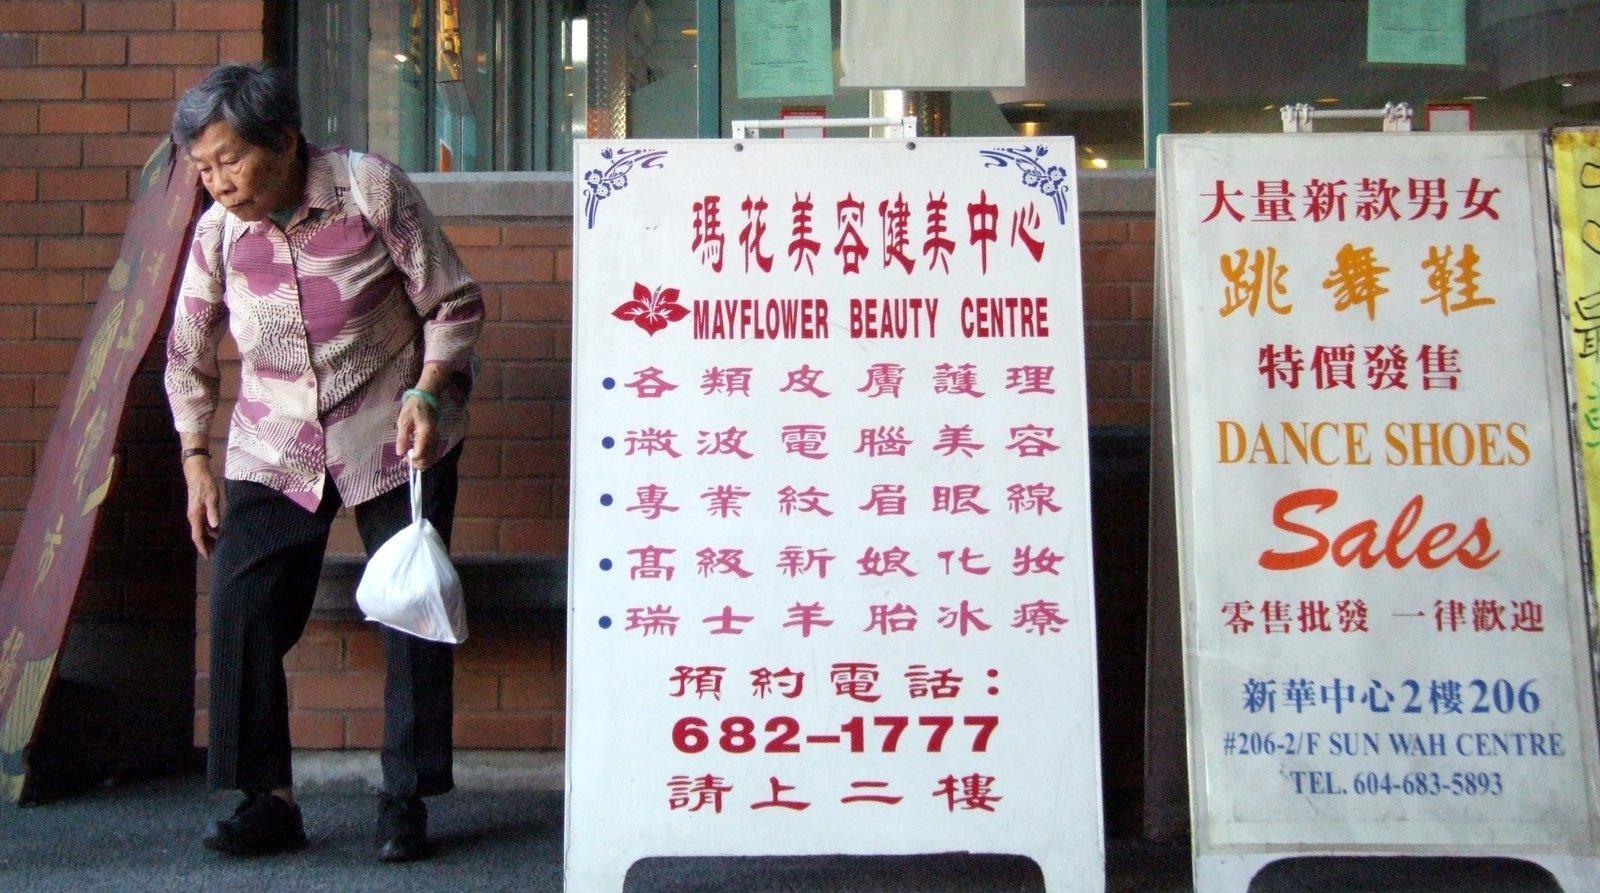 瑪花美容健美中心
MAYFLOWER BEAUTY CENTRE
• 各類皮膚護理
• 微波電腦美容
• 專業紋眉眼線
• 高級新娘化妝
• 瑞士羊胎冰療
預約電話：
682-1777
請上二樓
大量新款男女
跳舞鞋
特價發售
DANCE SHOES
Sales
零售批發 一律歡迎
新華中心2樓206
#206-2/F SUN WAH CENTRE
TEL. 604-683-5893